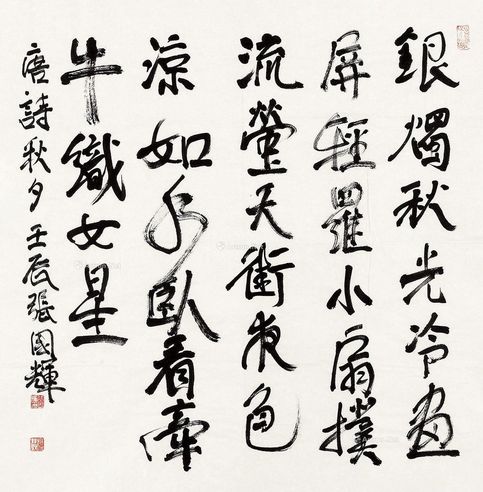 銀燭秋光冷画
屏輕羅小扇撲
流螢天街夜色
涼如水臥看牽
牛織女星
唐詩秋夕壬辰張國輝